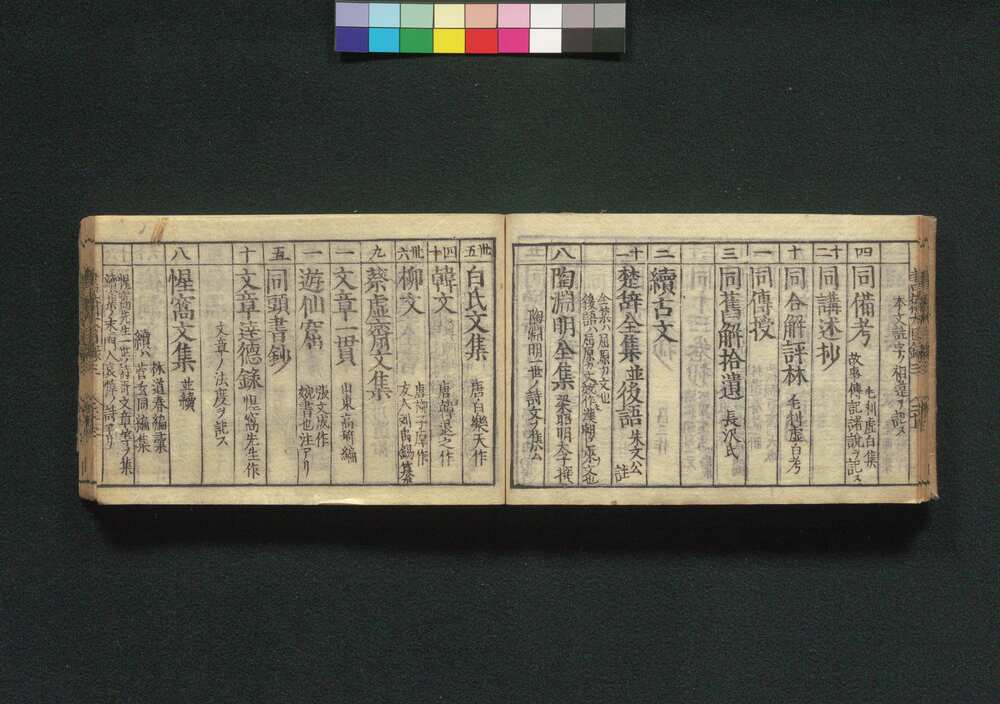 本文註等ノ相違ヲ記ス
四 同備考 毛利虚白集
故事傳記諸説ヲ記ス
十二 同講述抄
十 同合解評林 毛利虚白考
一 同傳授
三 同舊解拾遺 長沢氏
二 續古文
十一 楚辞全集並後語 朱文公註
八 陶淵明全集 梁昭明太子撰
陶淵明一世ノ詩文ヲ集ム
卅五 白氏文集 唐白樂天作
四十 韓文 唐韓退之作
卅六 柳文 唐柳子厚作
友人劉禹錫纂
九 蔡虚齋文集
一 文章一貫 山東高琦編
一 遊仙窟 張文成作
婉書也注アリ
五 同頭書鈔
十 文章達徳録 惺窩先生作
文章ノ法度ヲ記ス
八 惺窩文集 並續
林道春編彙
續ハ 菅玄同編集
惺窩先生一世ノ詩哥文章等ヲ集